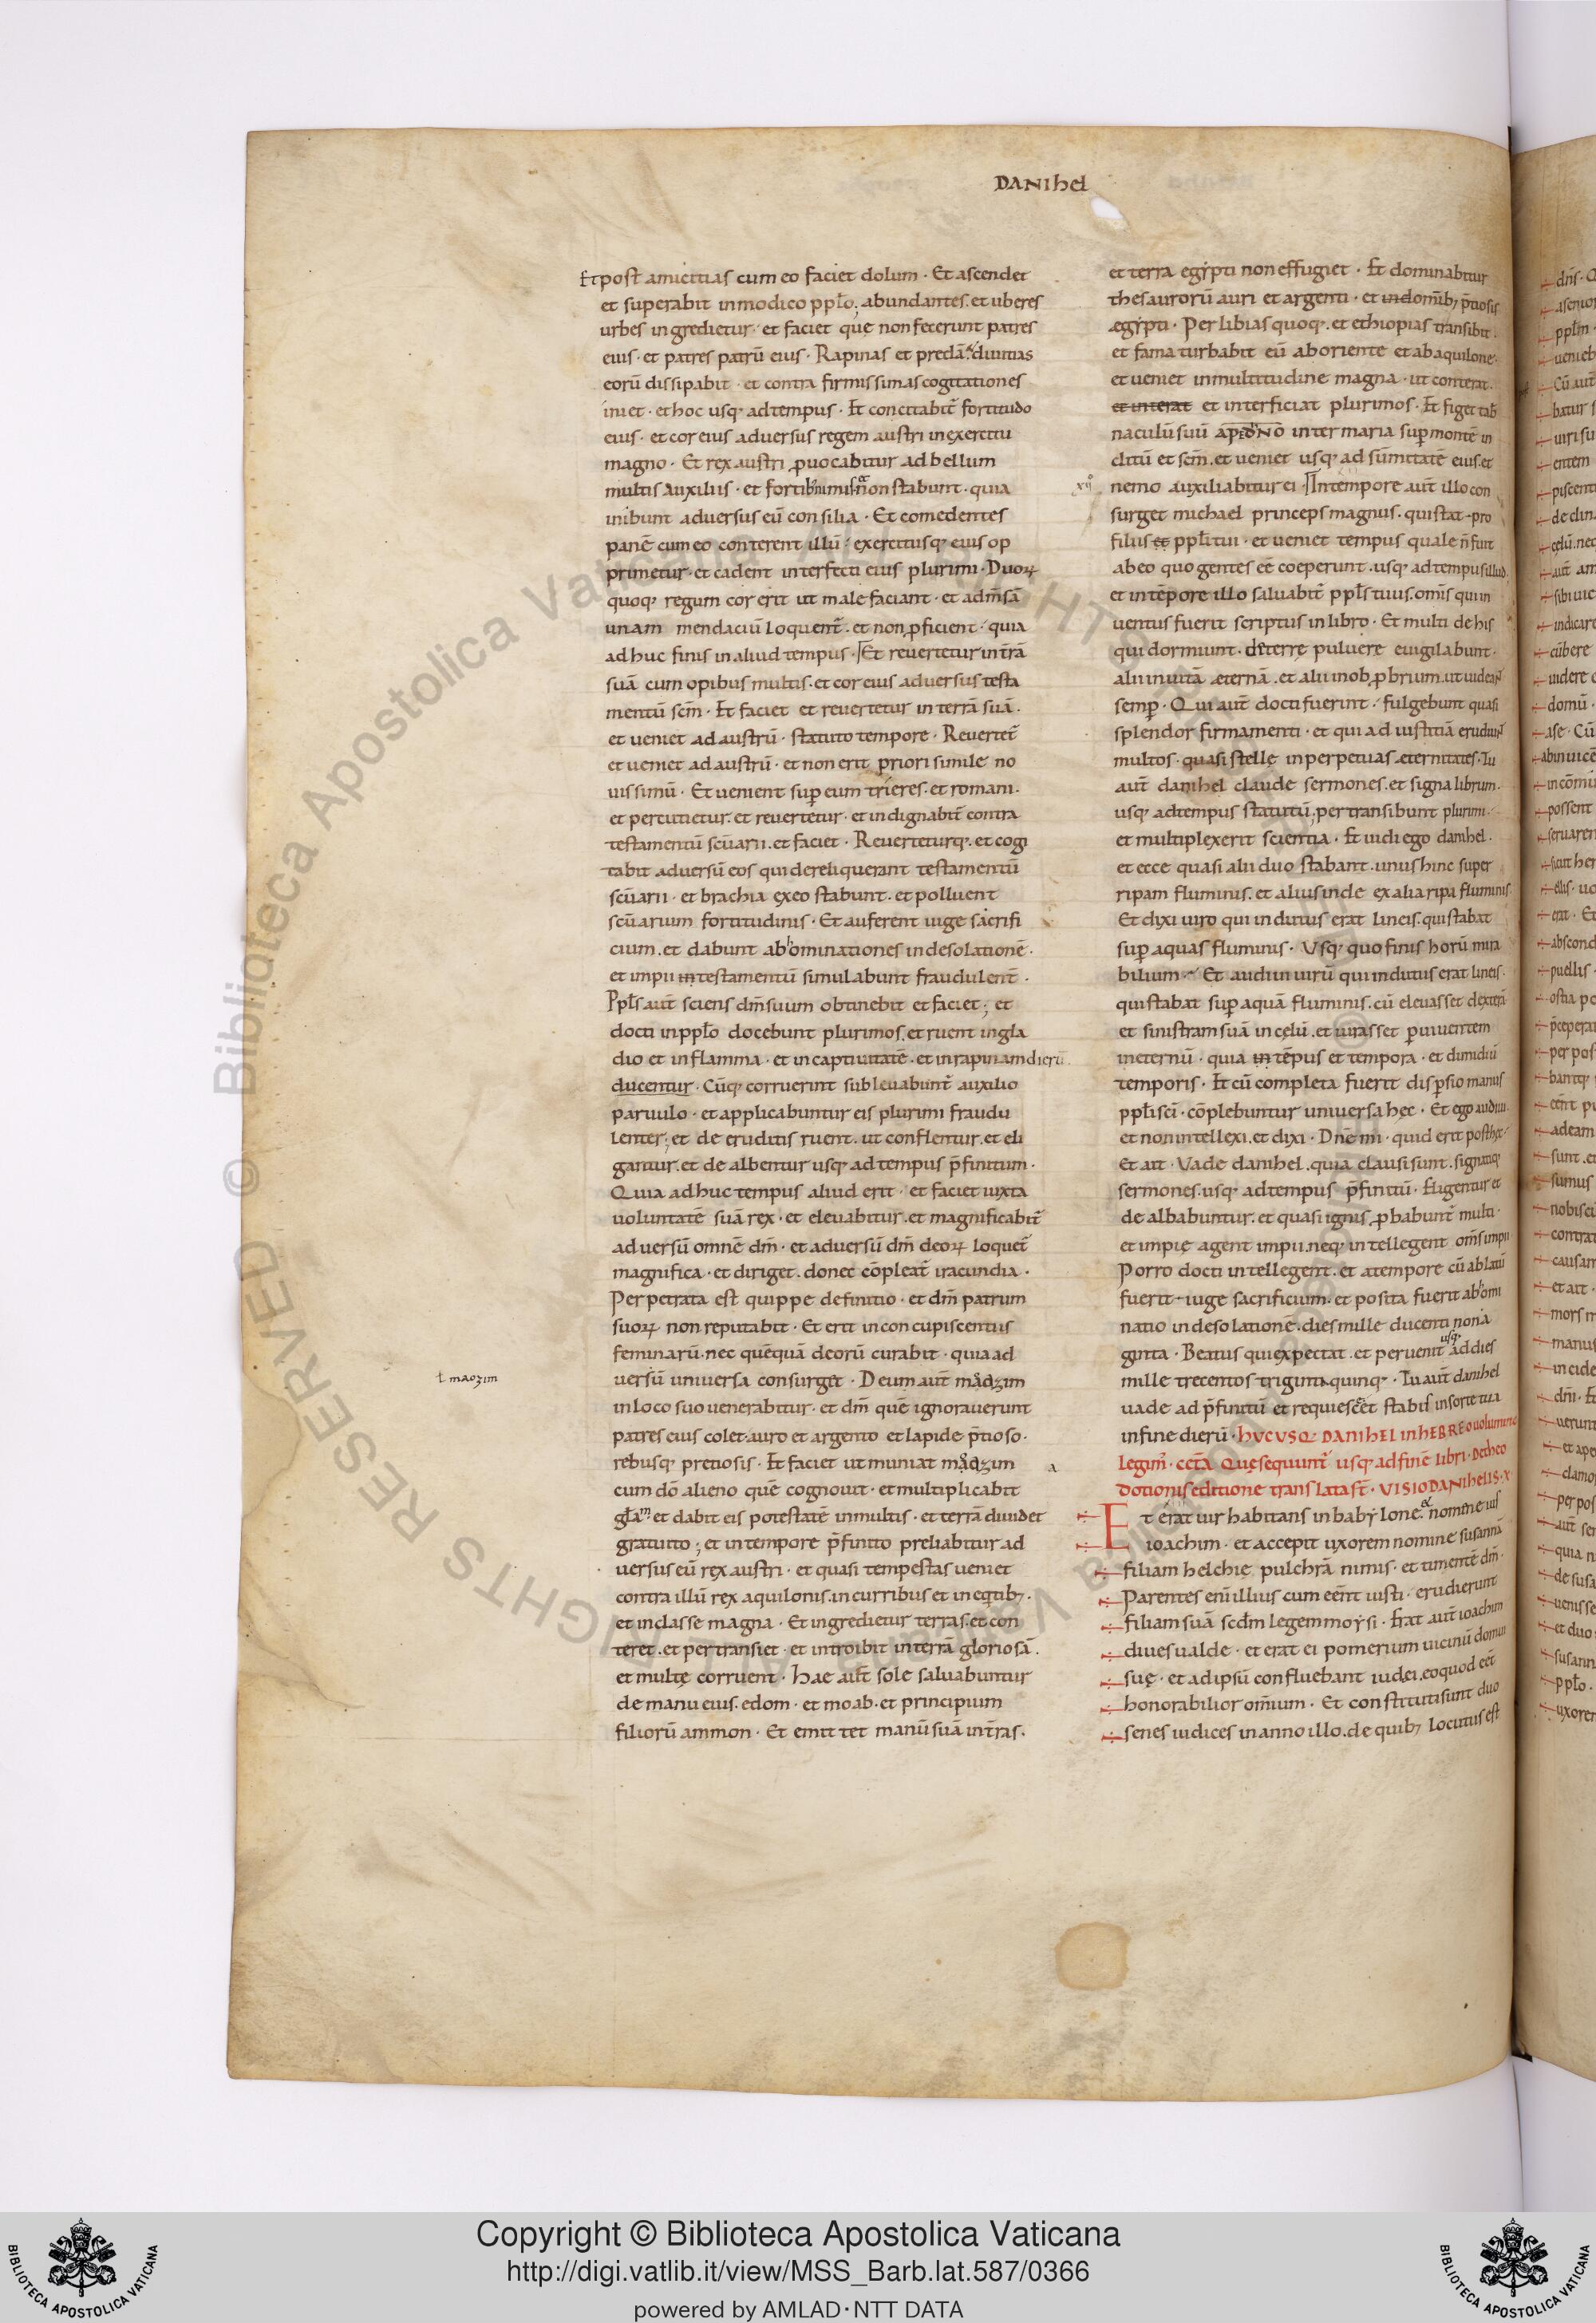 DANIhel
Et post amicitias cum eo faciet dolum · Et ascendet
et superabit inmodico pplo; abundantes. et uberes
urbes ingredietur · et faciet que non fecerunt patres
eius · et patres patrū eius · Rapinas et predā & diuitias
eorū dissipabit · et contra firmissimas cogitationes
iniet · et hoc usq; ad tempus · Et concitabit̄ fortitudo
eius · et cor eius aduersus regem austri in exercitu
magno · Et rex austri ꝓuocabitur ad bellum
multis auxiliis · et fortib; nimis & non stabunt · quia
inibunt aduersus eū consilia · Et comedentes
panē cum eo conterent illū · exercitusq; eius op
primetur · et cadent interfecti eius plurimi · Duoꝝ
quoq; regum cor erit ut male faciant · et ad m̄sā
unam mendaciū loquent̄ · et non ꝓficient · quia
adhuc finis in aliud tempus · Et reuertetur in t̄rā
suā cum opibus multis · et cor eius aduersus testa
mentū sc̄m · Et faciet et reuertetur in terrā suā ·
et ueniet ad austrū · statuto tempore · Reuertet̄
et ueniet ad austrū · et non erit priori simile no
uissimū · Et uenient suꝑ eum trieres · et romani ·
et percutietur · et reuertetur · et indignabit̄ contra
testamentū sc̄uarii · et faciet · Reuerteturq; · et cogi
tabit aduersū eos qui dereliquerant testamentū
sc̄uarii · et brachia ex eo stabunt · et polluent
sc̄uarium fortitudinis · Et auferent iuge sacrifi
cium · et dabunt abhominationes in desolationē ·
et impii in testamentū simulabunt fraudulent̄ ·
Ppl̄s aut̄ sciens dm̄ suum obtinebit et faciet; et
docti in pplo docebunt plurimos · et ruent in gla
dio et in flamma · et in captiuitatē · et in rapinam dierū
ducentur · Cūq; corruerint subleuabunt̄ auxilio
paruulo · et applicabuntur eis plurimi fraudu
lenter; et de eruditis ruent · ut conflentur · et eli
gantur · et dealbentur usq; ad tempus p̄finitum ·
Quia adhuc tempus aliud erit · et faciet iuxta
uoluntatē suā rex · et eleuabitur · et magnificabit̄
aduersū omnē dm̄ · et aduersū dm̄ deoꝝ loquet̄
magnifica · et diriget · donec cōpleat̄ iracundia ·
Perpetrata est quippe definitio · et dm̄ patrum
suoꝝ non reputabit · Et erit in concupiscentiis
feminarū · nec quēquā deorū curabit · quia ad
uersū uniuersa consurget · Deum aut̄ maozim
ł maozim
in loco suo uenerabitur · et dm̄ quē ignorauerunt
patres eius colet · auro et argento et lapide p̄tioso ·
rebusq; pretiosis · Et faciet ut muniat maozim
cum dō alieno quē cognouit · et multiplicabit
gl̄am et dabit eis potestatē in multis · et terrā diuidet
gratuito; et in tempore p̄finito preliabitur ad
uersus eū rex austri · et quasi tempestas ueniet
contra illū rex aquilonis · in curribus et in eqtib; ·
et in classe magna · Et ingredietur terras · et con
teret · et pertransiet · et introibit in terrā gloriosā ·
et multę corruent · Hae aut̄ sole saluabuntur
de manu eius · edom · et moab · et principium
filiorū ammon · Et emittet manū suā in t̄ras ·
et terra egẏpti non effugiet · Et dominabitur
thesaurorū auri et argenti · et in dom̄ib; p̄tiosis
ægẏpti · Per libias quoq; · et ethiopias transibit ·
et fama turbabit eū ab oriente et ab aquilone ·
et ueniet in multitudine magna · ut conterat ·
et interat et interficiat plurimos · Et figet tab̄
naculū suū APEDNO inter maria suꝑ montē in
clitū et sc̄m · et ueniet usq; ad sūmitatē eius · et
xii° nemo auxiliabitur ei · In tempore aut̄ illo con
surget michael princeps magnus · qui stat pro
filiis ppl̄i tui · et ueniet tempus quale n̄ fuit
ab eo quo gentes eē coeperunt · usq; ad tempus illud
et in tēpore illo saluabit̄ ppl̄s tuus · om̄is qui in
uentus fuerit scriptus in libro · Et multi de his
qui dormiunt · de terrę puluere euigilabunt ·
alii in uitā æternā · et alii in obꝓbrium · ut uideant
semꝑ · Qui aut̄ docti fuerint · fulgebunt quasi
splendor firmamenti · et qui ad iustitiā erudiunt
multos · quasi stellę in perpetuas æternitates · Tu
aut̄ danihel claude sermones · et signa librum ·
usq; ad tempus statutū; pertransibunt plurimi ·
et multiplex erit scientia · Et uidi ego danihel ·
et ecce quasi alii duo stabant · unus hinc super
ripam fluminis · et alius inde ex alia ripa fluminis
Et dixi uiro qui indutus erat lineis · qui stabat
suꝑ aquas fluminis · Usq; quo finis horū mira
bilium · Et audiui uirū qui indutus erat lineis ·
qui stabat suꝑ aquā fluminis · cū eleuasset dexterā
et sinistram suā in cęlū · et iurasset ꝑ uiuentem
in eternū · quia in tēpus et tempora · et dimidiū
temporis · Et cū completa fuerit disꝑsio manus
ppl̄i sc̄i · cōplebuntur uniuersa hęc · Et ego audiui ·
et non intellexi · et dixi · Dn̄e mi · quid erit post hęc ·
Et ait · Vade danihel · quia clausi sunt · signatiq;
sermones · usq; ad tempus p̄finitū · Eligentur et
dealbabuntur · et quasi ignis ꝓbabunt̄ multi ·
et impię agent impii · neq; intellegent om̄s impii
Porro docti intellegent · et a tempore cū ablatū
fuerit iuge sacrificium · et posita fuerit abhomi
natio in desolatione · dies mille ducenti nona
ginta · Beatus qui expectat · et peruenit usq; ad dies
mille trecentos triginta quinq; · Tu aut̄ danihel
uade ad p̄finitū et requiesce et stabis in sorte tua
in fine dierū · HUCUSQ; DANIHEL IN HEBREO uolumine
legim̄ · cet̄a Quę sequunt̄ usq; ad finē libri · De theo
dotionis editione translata st̄ · VISIO DANIHELIS · X
Et erat uir habitans in babẏlone · & nomen eius
ioachim · et accepit uxorem nomine susannā
filiam helchię pulchrā nimis · et timentē dm̄ ·
Parentes eni illius cum eēnt iusti · erudierunt
filiam suā scdm legem moẏsi · Erat aut̄ ioachim
diues ualde · et erat ei pomerium uicinū domui
suę · et ad ipsū confluebant iudei · eo quod eēt
honorabilior om̄ium · Et constituti sunt duo
senes iudices in anno illo · de quib; locutus est
© Biblioteca Apostolica Vaticana ALL RIGHTS RESERVED
Copyright © Biblioteca Apostolica Vaticana
http://digi.vatlib.it/view/MSS_Barb.lat.587/0366
powered by AMLAD·NTT DATA
BIBLIOTECA APOSTOLICA VATICANA
BIBLIOTECA APOSTOLICA VATICANA